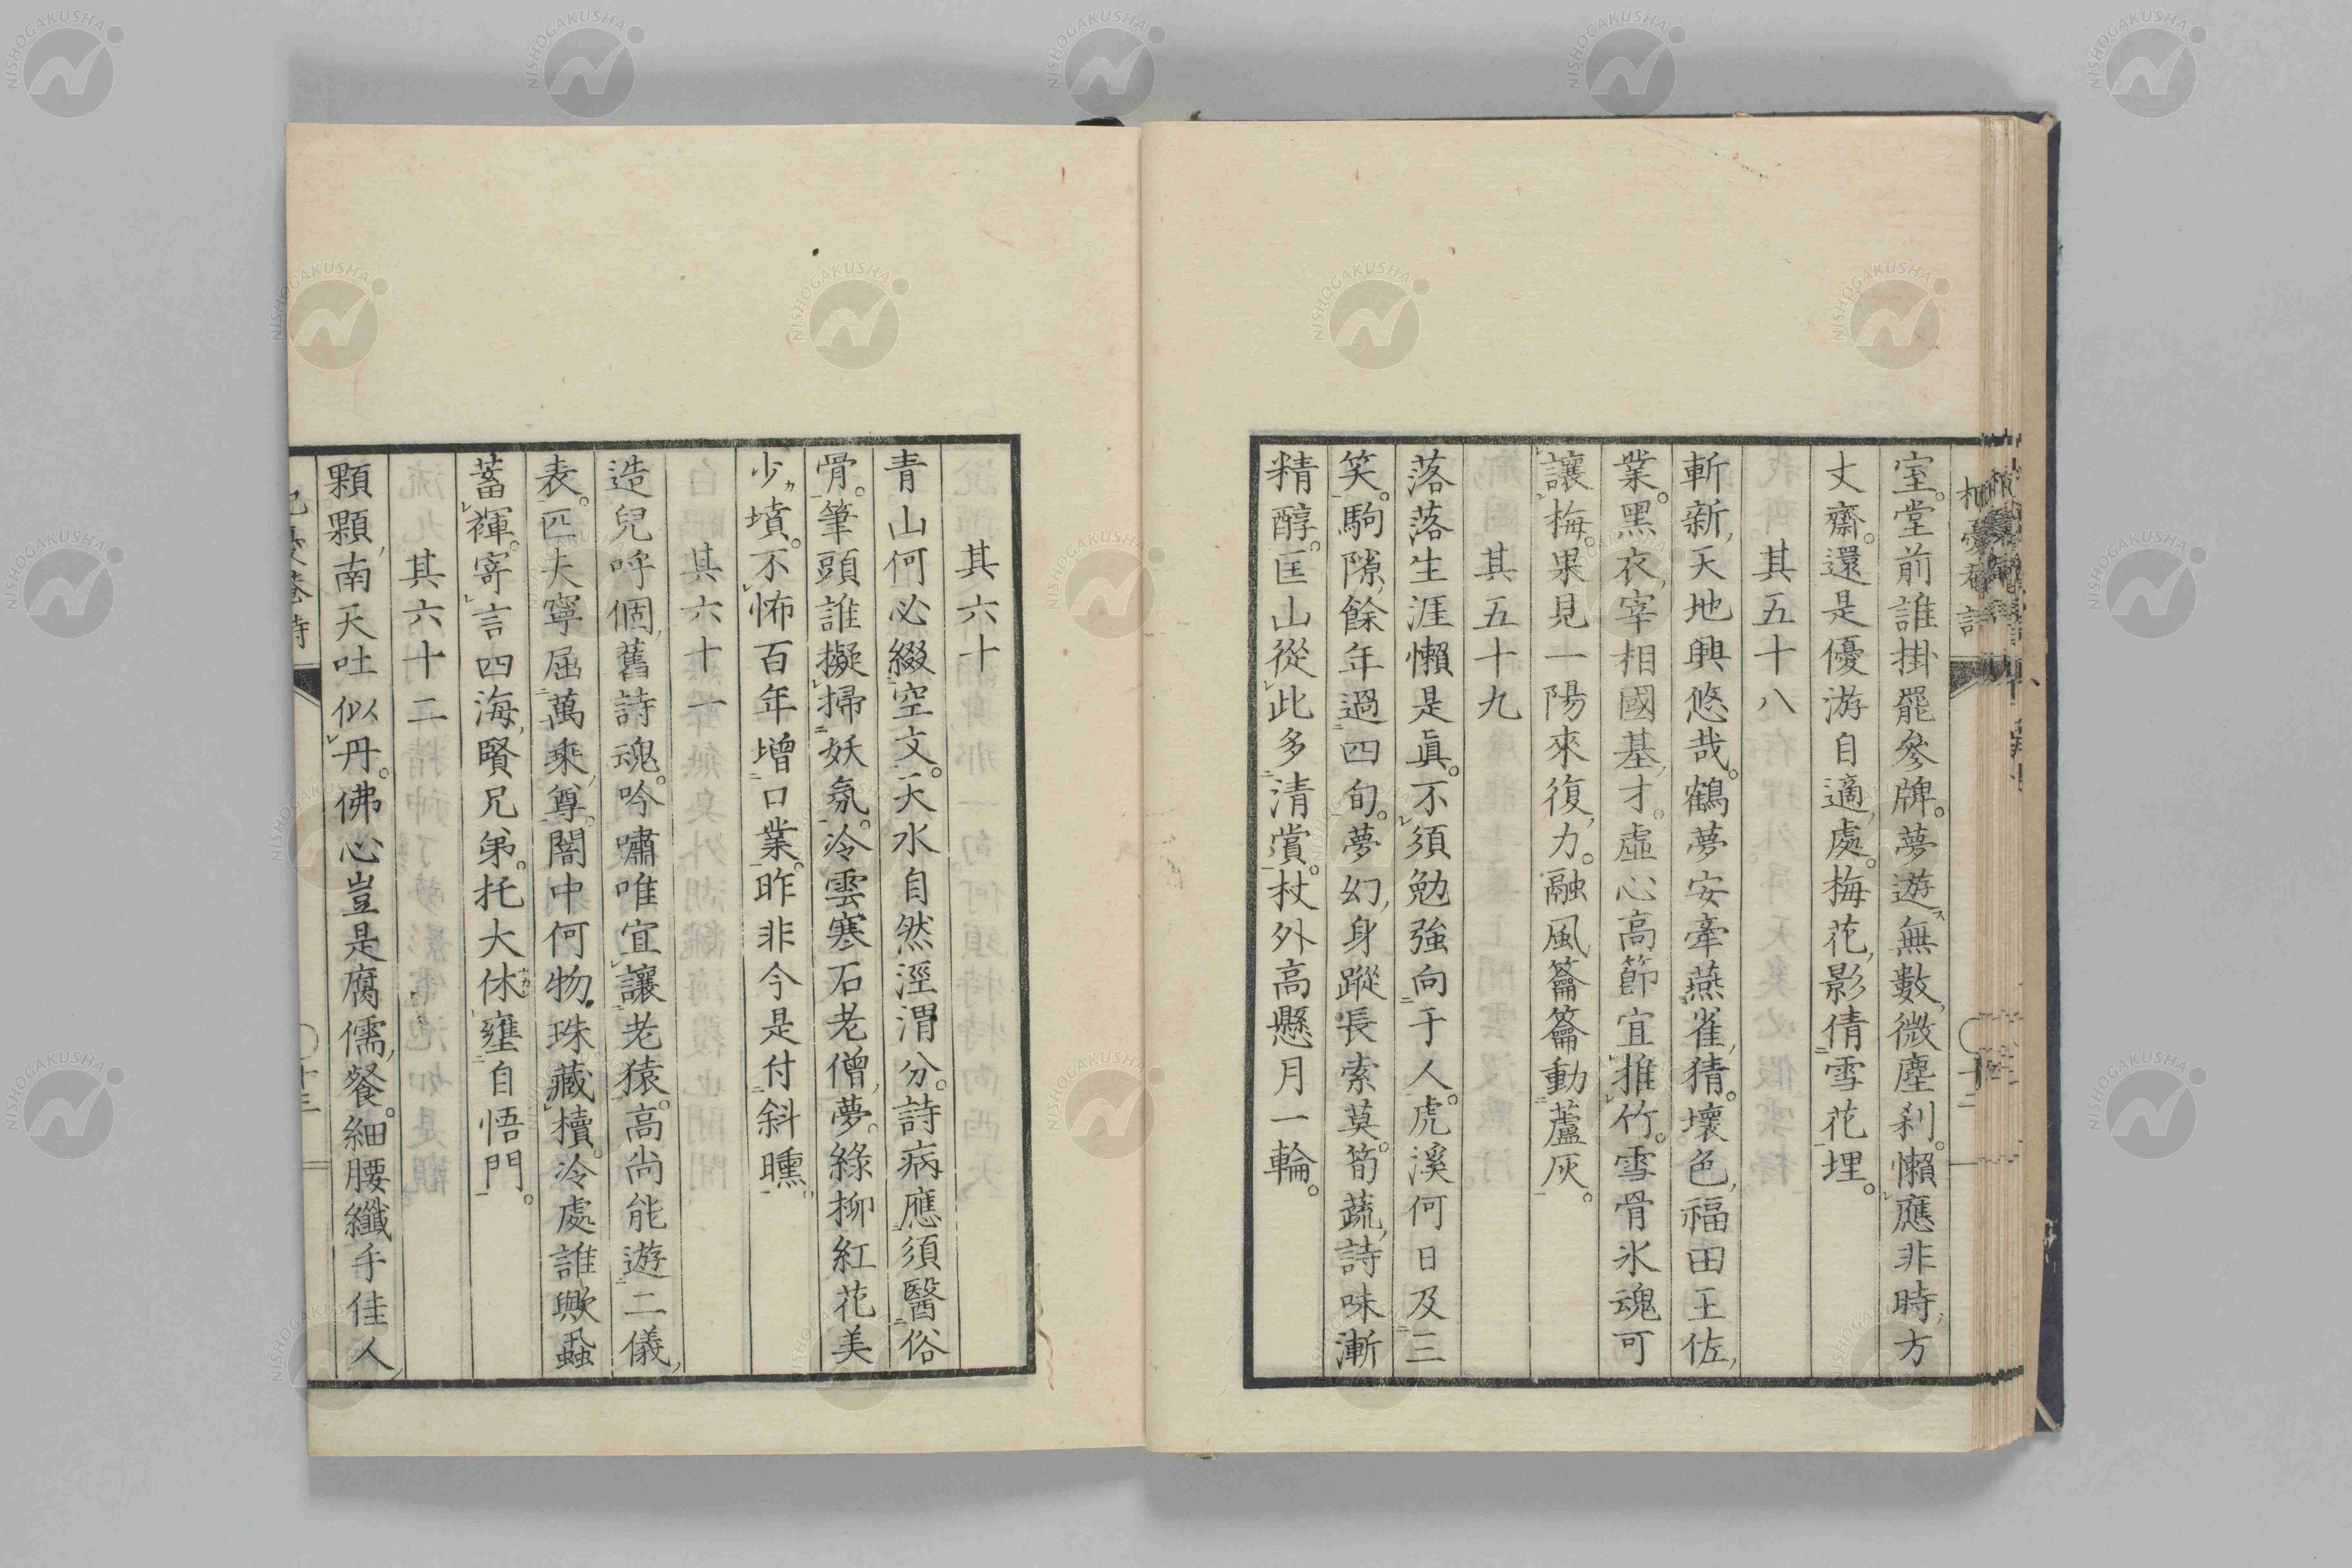 室。堂前誰掛罷參牌。夢遊無數微塵刹。懶應非時方
丈齋。還是優游自適處。梅花影倩雪花埋。
其五十八
斬新天地興悠哉。鶴夢安牽燕雀猜。壞色福田王佐
業。黑衣宰相國基才。虛心高節宜推竹。雪骨氷魂可
讓梅。果見一陽來復力。融風籥籥動蘆灰。
其五十九
落落生涯懶是眞。不須勉強向于人。虎溪何日及三
笑。駒隙餘年過四旬。夢幻身蹤長索莫。筍蔬詩味漸
精醇。匡山從此多清賞。杖外高懸月一輪。
其六十
青山何必綴空文。天水自然涇渭分。詩病應須醫俗
骨。筆頭誰擬掃妖氛。冷雲寒石老僧夢。綠柳紅花美
少墳。不怖百年增口業。昨非今是付斜曛。
其六十一
造兒呼個舊詩魂。吟嘯唯宜讓老猿。高尚能遊二儀
表。匹夫寧屈萬乘尊。闇中何物珠藏櫝。冷處誰歟蝨
蓄褌。寄言四海賢兄弟。托大休壅自悟門。
其六十二
顆顆南天吐似丹。佛心豈是腐儒餐。細腰纖手佳人
NISHOGAKUSHA